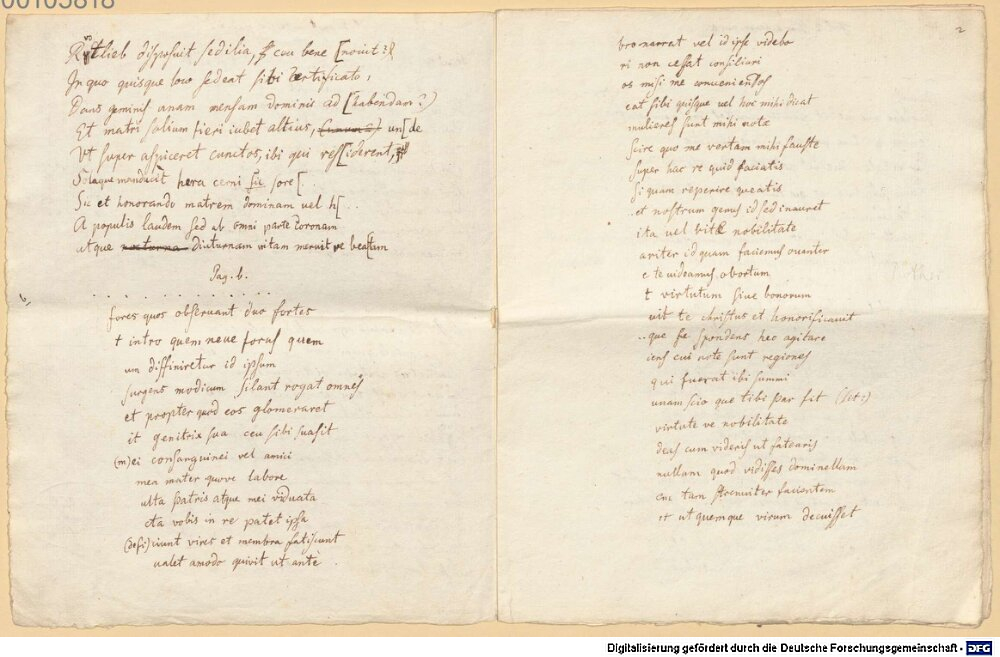 00105818
Rvotlieb disposuit sedilia, ceu bene [nouit?]
In quo quisque loco sedeat sibi certificato,
Dans geminis unam mensam dominis ad [habendam?)
Et matri solium fieri iubet altius, un[de
Ut super aspiceret cunctos, ibi qui res[iderent,
Solaque manducat hera cerni sic sore[
Sic et honorando matrem dominam uel h[..
A populis laudem sed ab omni parte coronam
atque nocturna diuturnam vitam meruit ve bea[tam
Pag. b.
. . . . . . . . . . . .
b,
fores quos observant duo fortes
t intro quem neue forus quem
un diffiniretur id ipsum
surgens modicum silant rogat omnes
et propter quod eos glomeraret
it genitrix sua ceu sibi suasit
(m)ei consanguinei vel amici
mea mater quove labore
ulta patris atque mei viduata
cta vobis in re patet ipsa
(defi)ciunt vires et membra fatiscunt
ualet amodo quivit ut ante.
2
bro narrat vel id ipse videbo
ri non cessat consiliari
os misi me conveniendos
cat sibi quisque vel hoc mihi dicat
mulieres sunt mihi notæ
scire quo me vertam mihi fauste
super hac re quid faciatis
si quam reperire queatis
..et nostrum genus id sed inauret
ita vel vitæ nobilitate
ariter id quam faciemus ouanter
e te uideamus obortum
t virtutum siue bonorum
uit te christus et honorificauit
..que se spondens hec agitare
iens cui note sunt regiones
qui fuerat ibi summi
unam scio que tibi par fit (sit:)
virtute ve nobilitate
deas cum videris ut fatearis
nullam quod vidisses dominellam
tam strenuiter facientem
et ut quemque virum decuisset
Digitalisierung gefördert durch die Deutsche Forschungsgemeinschaft - DFG